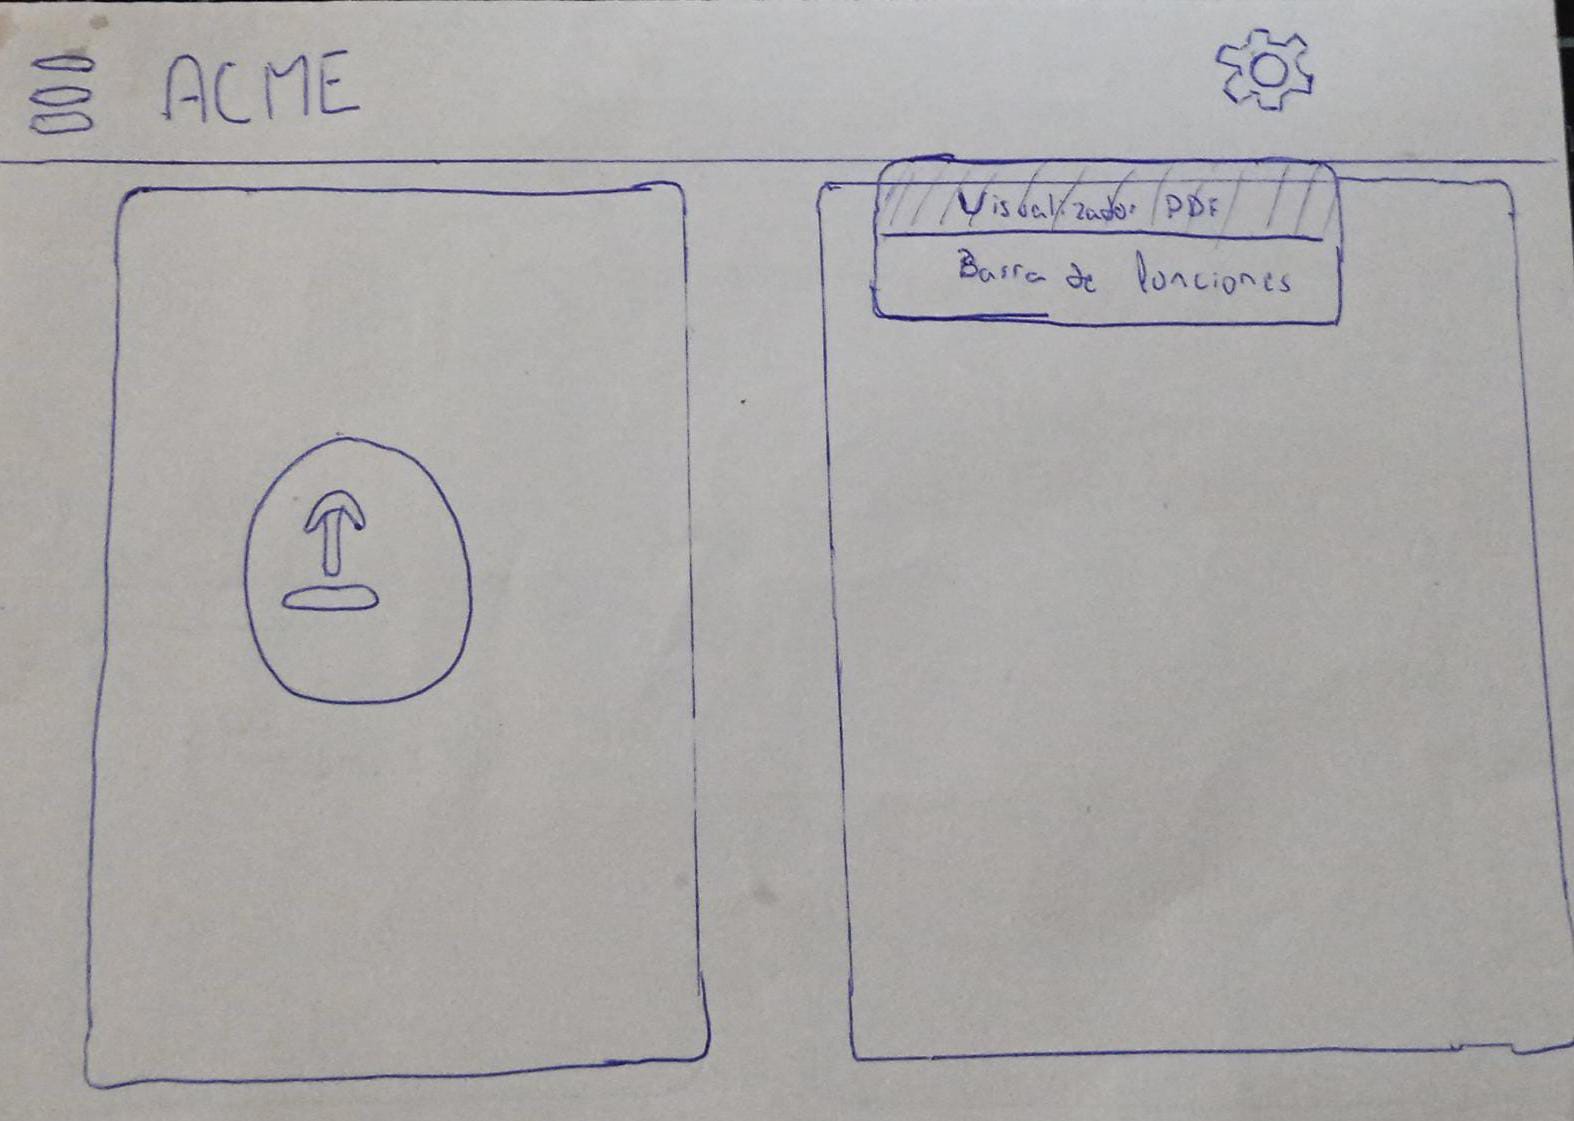 ACME
Visualizador PDF
Barra de funciones